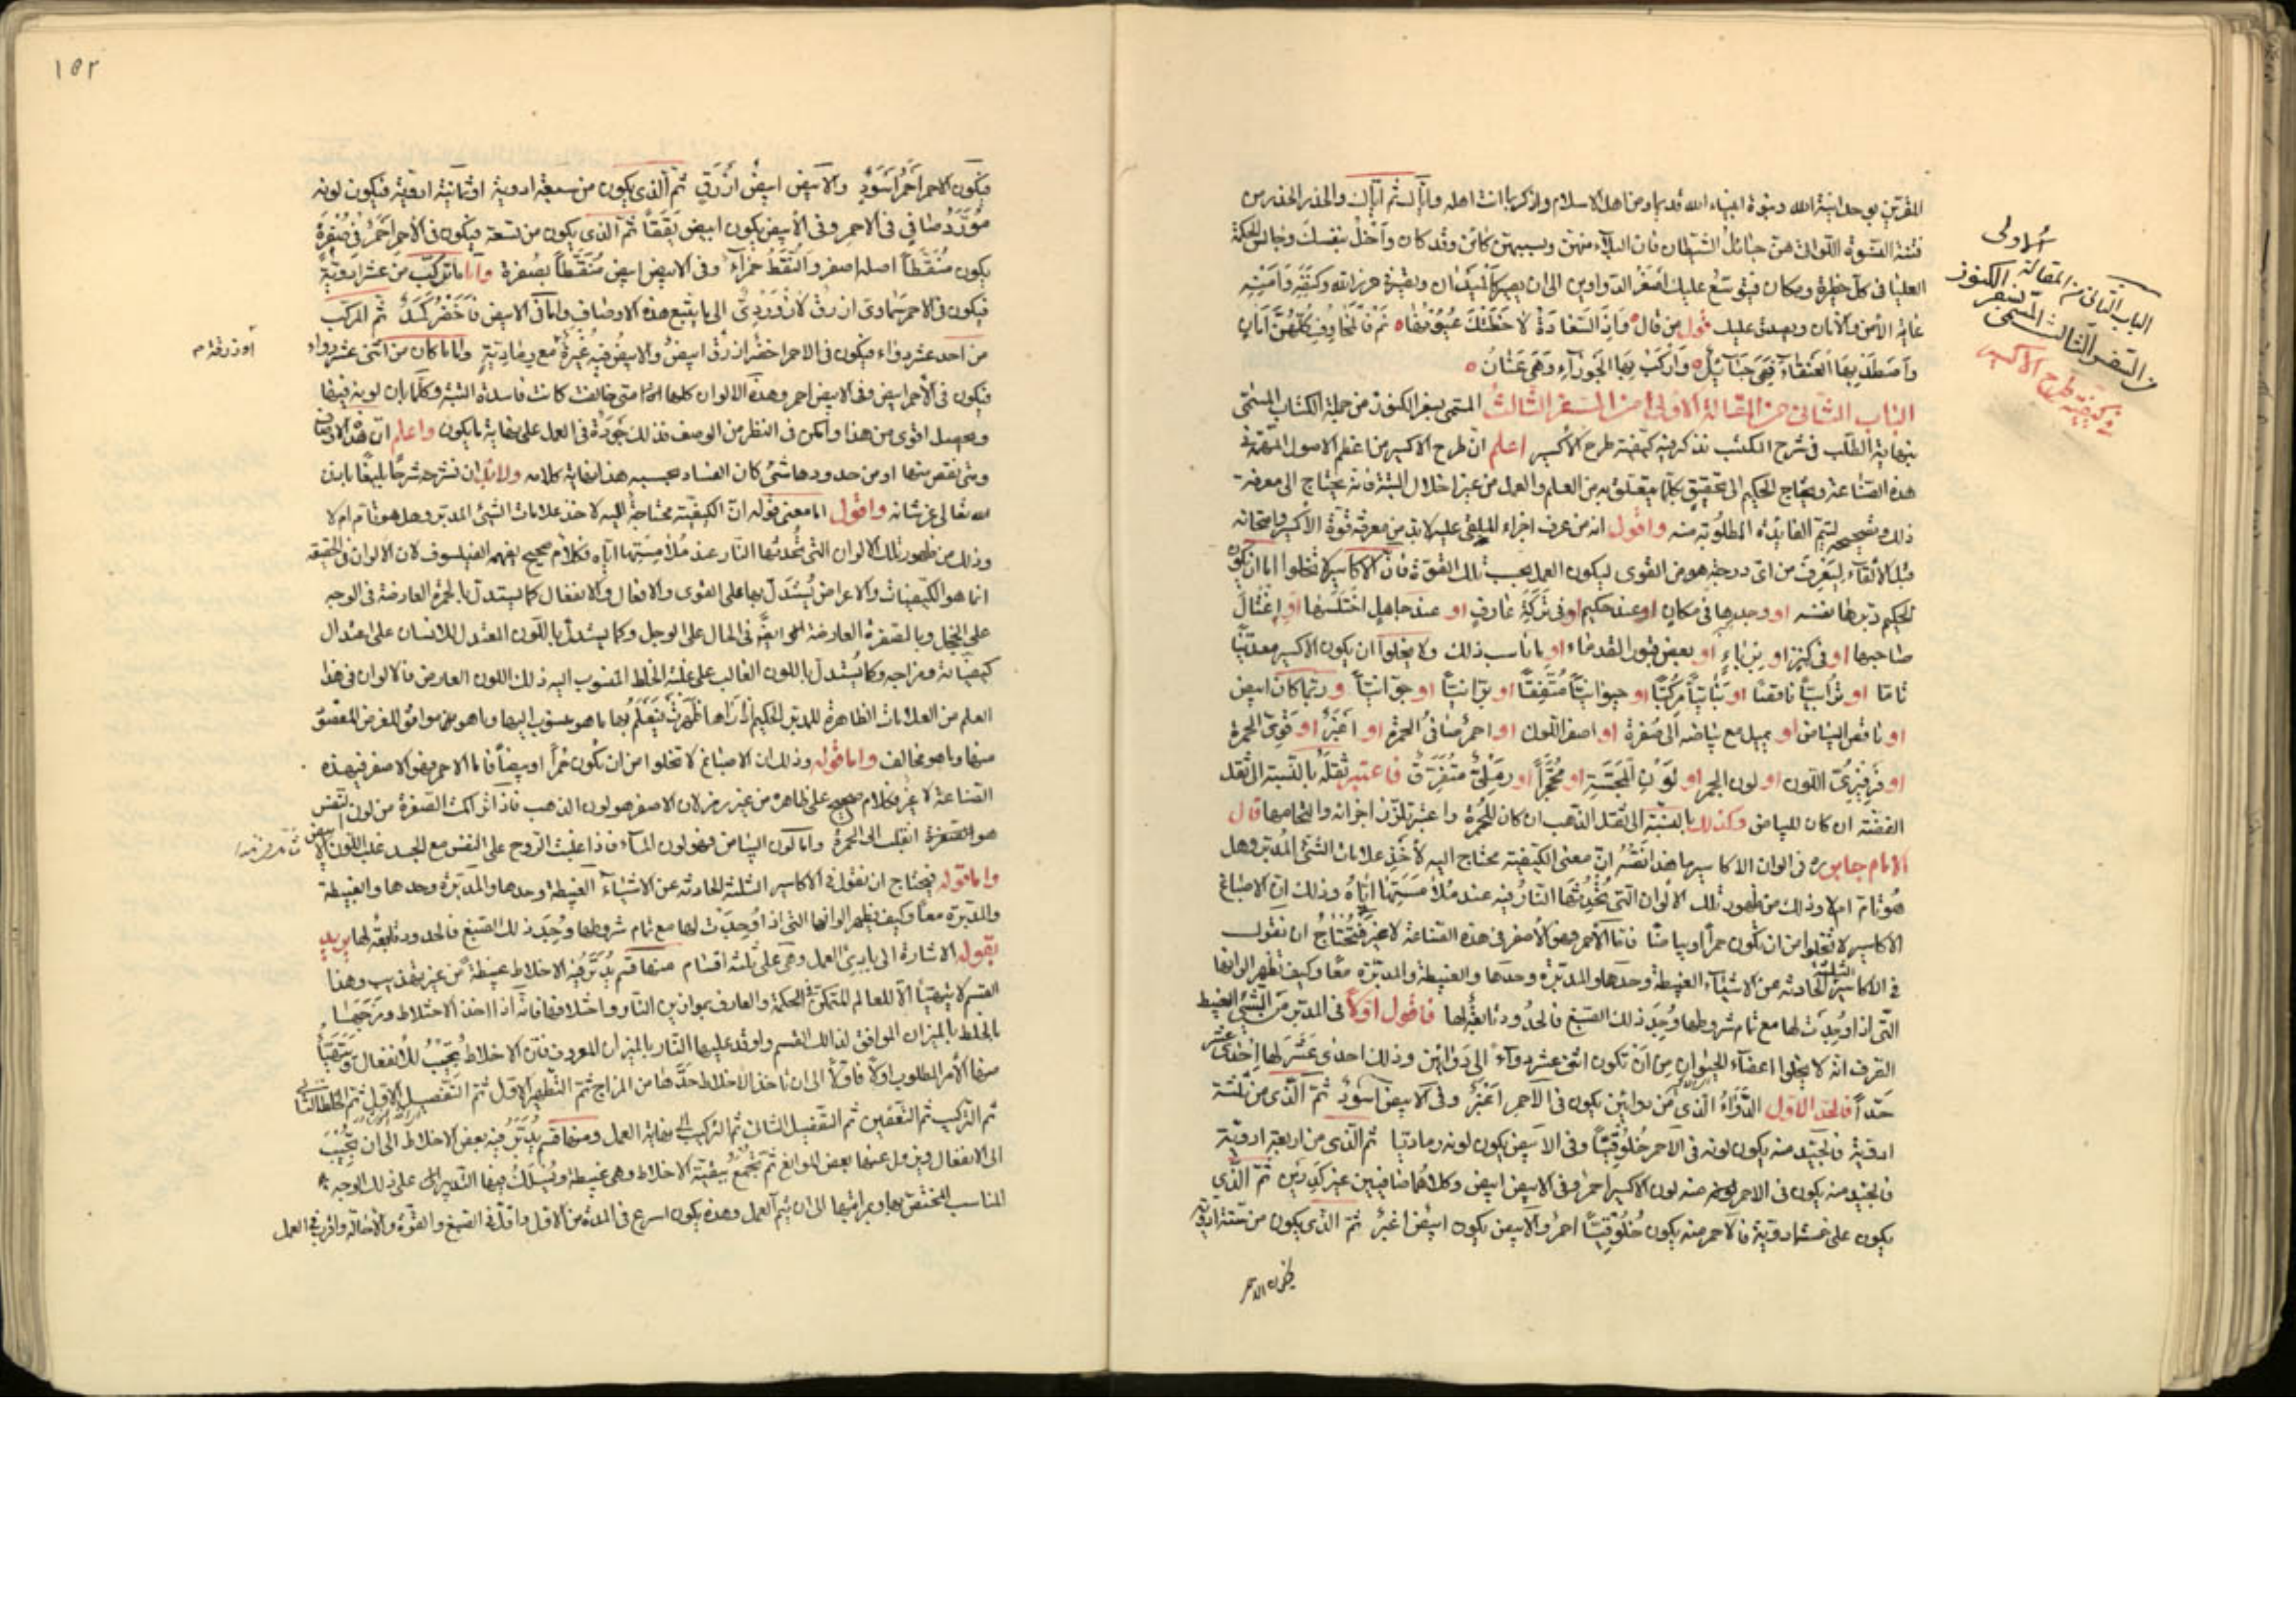 المقرين بوحدانية الله وبنبوة انبياء الله قديما ومن اهل الاسلام واذكر ما انت اهله واياك ثم اياك والحذر الحذر من
فتنة النسوة اللواتى هن حبائل الشيطان فان البلاء منهن وبسببهن كائن وقد كان وادخل بنفسك وجالس الحكمة
العليا فى كل خطرة ومكان
غاية الامن والامان ويصدق عليك قول من قال واذا السعادة لاحظتك عيونها نم فالمخاوف كلهن امان
واصطد بها العنقاء فهى حبائل واركب بها الجوزاء وهى عنان
الباب الثانى من المقالة الاولى من السفر الثالث المسمى بسفر الكنوز من جملة الكتاب المسمى
بنهاية الطلب فى شرح المكتسب نذكر فيه كيفية طرح الاكسير اعلم ان طرح الاكسير من اعظم الاصول المهمة فى
هذه الصناعة ويحتاج الحكيم الى تحقيق كلما يتعلق به من العلم والعمل من غير اخلال البتة فانه يحتاج الى معرفة
ذلك وتصحيحه ليتم الفايدة المطلوبة منه واقول انه من عرف اجزاء الملقى عليه لا بد من معرفة قوة الاكسير وامتحانه
قبل الالقاء ليعرف من اى درجة هو من القوى ليكون العمل بحسب تلك القوة فان الاكاسير لا تخلوا اما ان يكون
الحكيم دبرها بنفسه او وجدها فى مكان او عند حكيم او فى تركة عارف او عند جاهل اختلسها او اغتال
صاحبها او فى كنز او بربا او بعض قبور القدماء او ما ناسب ذلك ولا يخلوا ان يكون الاكسير معدنيا
تاما او ترابيا ناقصا او نباتيا مركبا او حيوانيا او برانيا او جوانيا وربما كان ابيض
او ناقص البياض او يميل مع بياضه الى صفرة او اصفر اللون او احمر صافى الحمرة او اغبر او قوى الحمرة
او فرفيرى اللون او لون الجمر او لون المجسة او محجرا او رملى متفرق فاعتبر ثقله بالنسبة الى ثقل
الفضة ان كان للبياض وكذلك بالنسبة الى ثقل الذهب ان كان للحمرة واعتبر تلزز اجزائه والتحامها قال
الامام جابر ره فى الوان الاكاسير ما هذا نصه ان معنى الكيفية محتاج اليه لاخذ علامات الشئ المدبر وهل
هو تام ام لا وذلك من ظهور تلك الالوان التى تحدثها النار فيه عند ملامستها اياه وذلك ان الاصباغ
الاكاسير لا تخلوا من ان تكون حمرا او بياضا فاما الاحمر فهو الاصفر فى هذه الصناعة لا غير فتحتاج ان نقول
فى الاكاسير الثلثة الحادثة عن الاشياء الغبيطة وحدها والمدبرة وحدها والغبيطة والمدبرة معا وكيف تظهر الوانها
التى اذا وجدت لها مع تمام شروطها وجد ذلك الصبغ فالحدود تابعة لها فاقول اولا فى المدبر من الشئ الغبيط
الصرف انه لا يخلوا اعضاء الحيوان من ان تكون اثنى عشر دواء الى دوائين وذلك احدى عشر لها احدى عشر
حدا فالحد الاول الدواء الذى من دوائين يكون فى الاحمر اغبر وفى الابيض اسود ثم الذى من ثلثة
ادوية فالجيد منه يكون لونه فى الاحمر خلوقيا وفى الابيض يكون لونه رماديا ثم الذى من اربعة ادوية
فالجيد منه يكون فى الاحمر لونه منه لون الاكسير احمر وفى الابيض ابيض وكلاهما صافيين غير كدرين ثم الذى
يكون على خمسة ادوية فالاحمر منه يكون خلوقيا احمر والابيض يكون ابيض اغبر ثم الذى يكون من ستة ادوية
فيكون الاحمر
الباب الثانى من المقالة الاولى
من السفر الثالث المسمى بسفر الكنوز
فى كيفية طرح الاكسير
١٥٢
فيكون الاحمر احمر اسود والابيض ابيض ازرق ثم الذى يكون من سبعة ادوية او ثمانية ادوية فيكون لونه
مورد صافى فى الاحمر وفى الابيض يكون ابيض يققا ثم الذى يكون من تسعة فيكون فى الاحمر احمر فى صفرة
يكون منقطا اصله اصفر والنقط حمراء وفى الابيض ابيض منقطا بصفرة واما ما تركب من عشر ادوية
فيكون فى الاحمر سماوى ازرق لازوردى الى ما يتبع هذه الاوصاف واما فى الابيض فاخضر كمد ثم المركب
من احد عشر دواء فيكون فى الاحمر اخضر ازرق ابيض والابيض فيه غبرة مع رمادية واما ما كان من اثنى عشر دواء
فيكون فى الاحمر ابيض وفى الابيض احمر وهذه الالوان كلها متى خالفت كانت فاسدة البتة وكلما بان لونه فيها
وبصبل اقوى من هذا وامكن فى النظر من الوصف فذلك جودة فى العمل على نهاية ما يكون واعلم ان هذه الاوصاف
ومتى نقص منها او من حدودها شئ كان الفساد بحسبه هذا نهاية كلامه ولا بد ان نشرحه شرحا بليغا باذن
الله تعالى عز شانه واقول اما معنى قوله ان الكيفية محتاجة اليه لاخذ علامات الشئ المدبر وهل هو تام ام لا
وذلك من ظهور تلك الالوان التى تحدثها النار عند ملامستها اياه فكلام صحيح يفهمه الفيلسوف لان الالوان فى الحقيقة
انما هو الكيفيات والاعراض يستدل بها على القوى والافعال والانفعال كما يستدل بالحمرة العارضة فى الوجه
على الخجل وبالصفرة العارضة فى الحال على الوجل وكما يستدل باللون المعتدل للانسان على اعتدال
كيفياته ومزاجه وكما يستدل باللون الغالب على غلبة الخلط المنسوب اليه ذلك اللون العارض فالالوان فى هذا
العلم من العلامات الظاهرة للمدبر الحكيم اذا راها ظهرت فيتعلم بها ما هو منسوب اليها وما هو موافق للغرض المقصود
منها وما هو مخالف واما قوله وذلك ان الاصباغ لا تخلوا من ان تكون حمرا او بيضا فاما الاحمر فهو الاصفر فى هذه
الصناعة لا غير فكلام صحيح على ظاهره من غير رمز لان الاصفر هو لون الذهب فاذا تراكمت الصفرة من لون النفس
هو الصفرة انقلب الى الحمرة واما كون البياض فهو لون الماء فاذا غلبت الروح على النفس مع الجسد غلب اللون الابيض
واما قوله فيحتاج ان نقول فى الاكاسير الثلثة الحادثة عن الاشياء الغبيطة وحدها والمدبرة وحدها والغبيطة
والمدبرة معا وكيف يظهر الوانها التى اذا وجدت لها مع تمام شروطها وجد ذلك الصبغ فالحدود تابعة لها يريد
بقوله الاشارة الى مبادئ العمل وهى على ثلثة اقسام منها قسم يدبر فيه الاخلاط غبيطة من غير تهذيب وهذا
القسم لا يتهيأ الا للعالم المتمكن فى الحكمة والعارف بموازين النار واختلافها فانه اذا اخذ الاختلاط ومزجها
بالخلط بالميزان الموافق لذلك القسم واوقد عليها النار بالميزان المعروف فان الاخلاط تجيب للانفعال ويتهيأ
منها الامر المطلوب اولا فاولا الى ان تاخذ الاخلاط حدها من المزاج ثم التطهير الاول ثم التفصيل الاول ثم الخلط الثانى
ثم التركيب ثم التعفين ثم التفصيل الثانى ثم التركيب الى نهاية العمل ومنها قسم يدبر فيه بعض الاخلاط الى ان يجيب
الى الانفعال ويزول عنها بعض الموانع ثم يجمع ببقية الاخلاط وهى غبيطة ويسلك فيها التدبير على ذلك الوجه
المناسب المختص بها وبمراتبها الى ان يتم العمل وهذه يكون اسرع فى المدة من الاول واقل فى الصبغ والقوة والاحالة واقرب فى العمل